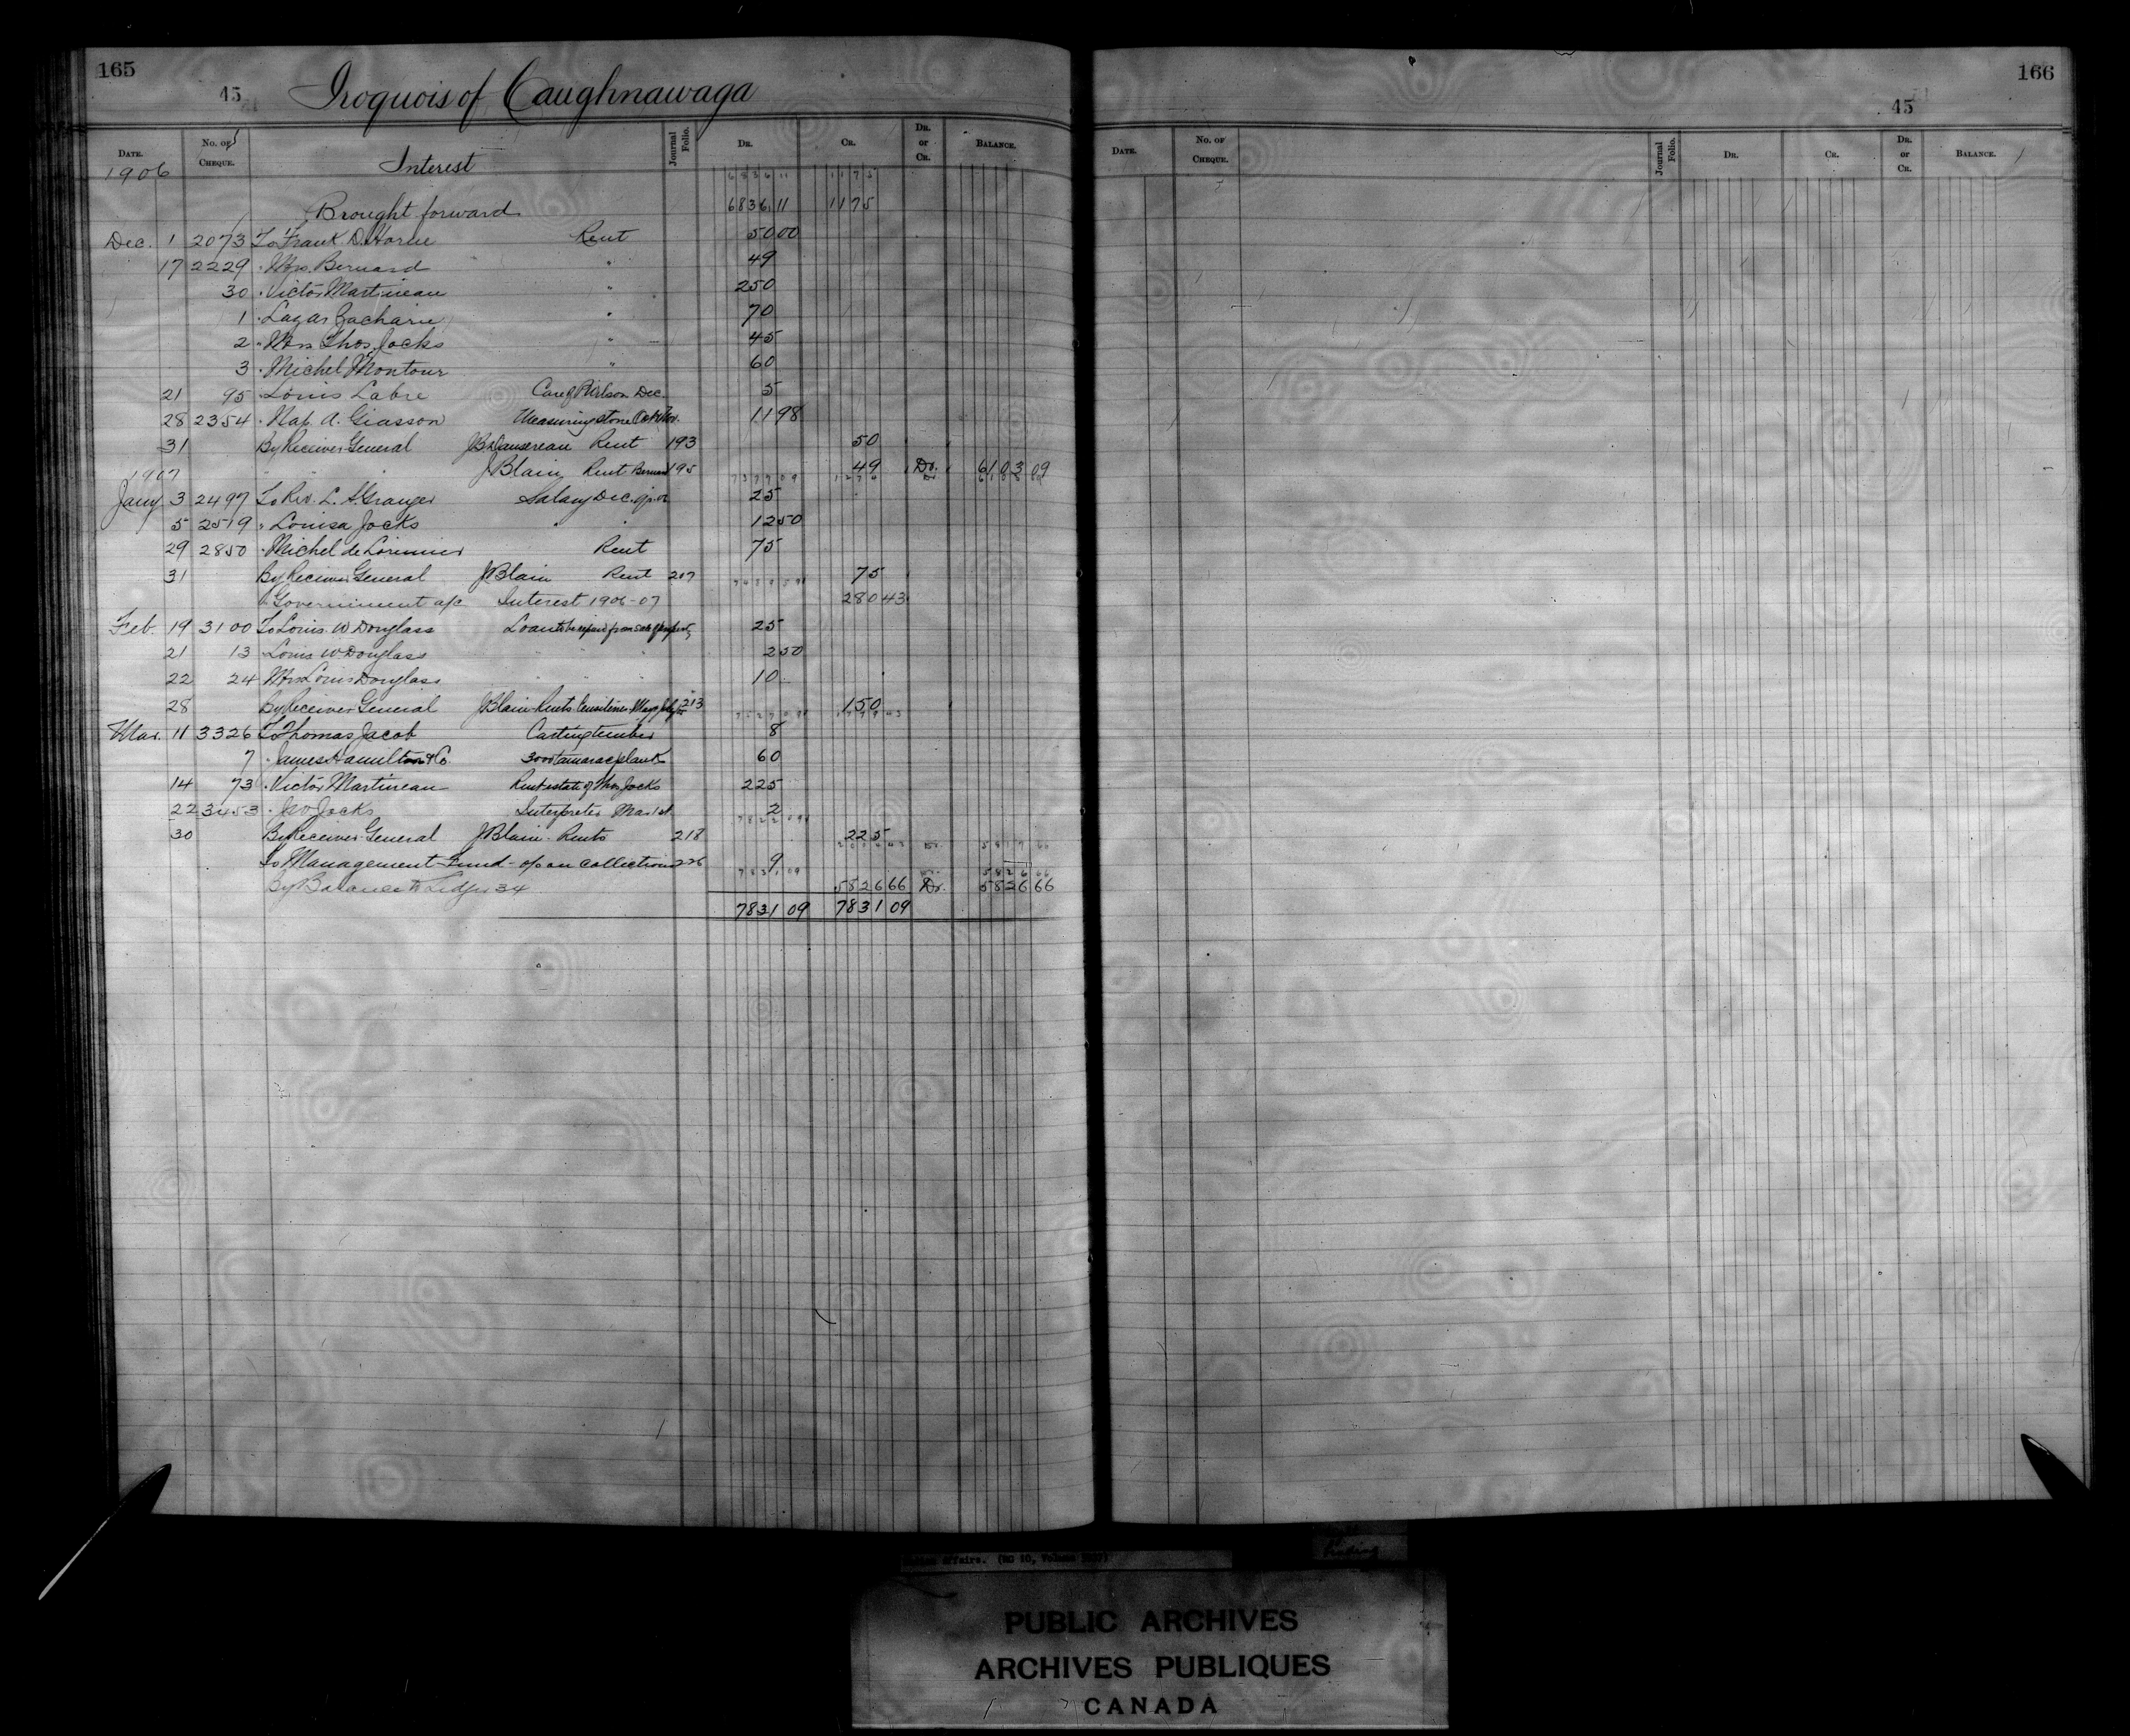 165
45 Iroquois of Caughnawaga
DATE. No. of CHEQUE. Journal Folio. DR. CR. DR. or CR. BALANCE.
1906 Interest
6836 11 1175
Brought forward 6836 11 1175
Dec. 1 2073 To Frank D. Horne Rent 50 00
17 2229 " Mrs. Bernard " 49
30 " Victor Martineau " 250
1 " Lazar Zacharie " 70
2 " Mrs Thos. Jocks " 45
3 " Michel Montour " 60
21 95 " Louis Labre Care of Dec. 5
28 2354 " Nap. A. Giasson Measuring stone Oct & Nov. 11 98
31 By Receiver General J.B. Dansereau Rent 193 50
1907 " " J Blain Rent Bernard 195 49 Dr. 6103 09
7377 09 1274
Jany 3 2497 To Rev. L. Granger Salary Dec. qr. 06 25
5 2519 " Louisa Jocks " " 12 50
29 2850 " Michel de Lorimier Rent 75
31 By Receiver General J Blain Rent 207 75
" Government a/c Interest 1906-07 280 43
Feb. 19 3100 To Louis W Douglass Loan to be repaid from sale of property 25
21 13 " Louis W Douglass " " " 2 50
22 24 " Mrs Louis Douglass " " " 10
28 By Receiver General J Blain Rents 213 150
Mar. 11 3326 To Thomas Jacob Carting timber 8
7 " James Hamilton & Co. 3000 tamarac plank 60
14 73 " Victor Martineau Rent estate of Thos Jocks 225
22 3453 " Jocks Interpreter Mar 1st 2
30 By Receiver General J Blain - Rents 218 225
To Management Fund - o/o on collections 226 9
7831 09
By Balance to Ledger 34 5826 66 Dr. 5826 66
7831 09 7831 09
166
45
DATE. No. of CHEQUE. Journal Folio. DR. CR. DR. or CR. BALANCE.
Affairs. (RG 10, Volume
PUBLIC ARCHIVES
ARCHIVES PUBLIQUES
CANADA